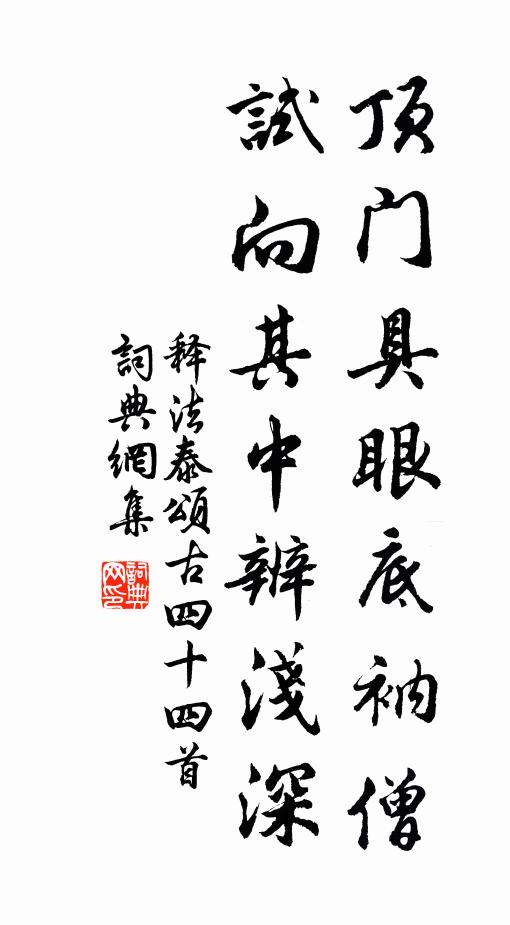 顶门具眼底衲僧
試向其中辨淺深
释法泰頌古四十四首
詞典網集
詞典网印